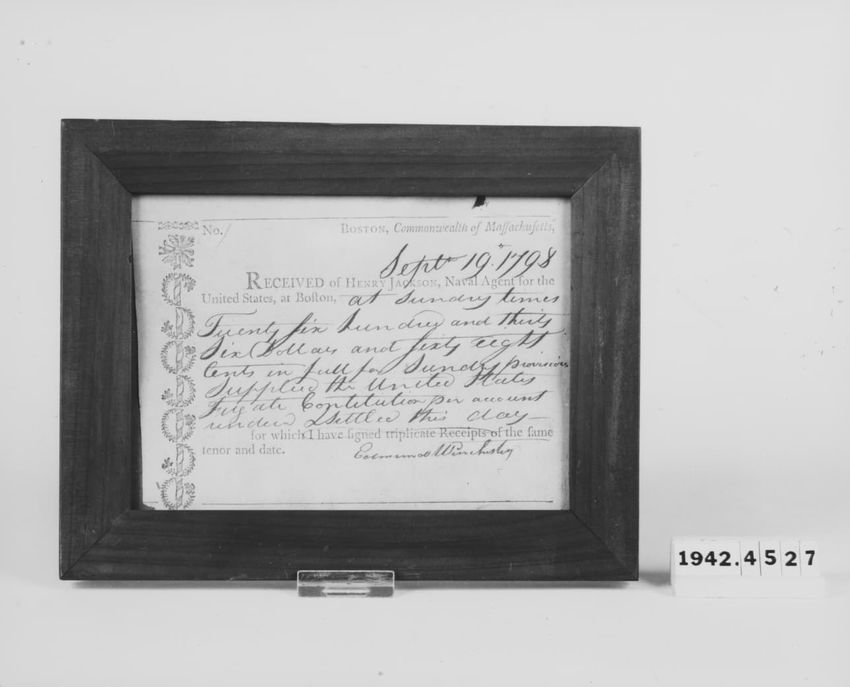 No. /
BOSTON, Commonwealth of Maſſachuſetts,
Septr 19. 1798
RECEIVED of HENRY JACKSON, Naval Agent for the
United States, at Boſton, at Sundry times
Twenty ſix hundred and thirty
Six Dollars and ſixty eight
Cents in full for Sundry proviſions
Supplied the United States
Frigate Conſtitution per account
rendered & Settled this day
for which I have ſigned triplicate Receipts of the ſame
tenor and date.
Edmund Wincheſter
1942.4527